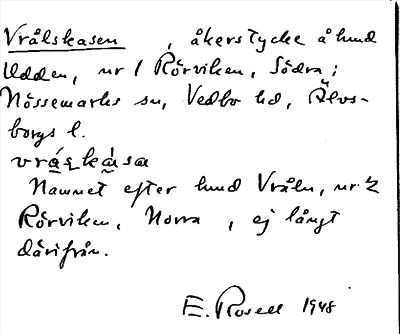 Vrålskasen , åkerstycke å hmd
Udden, nr 1 Rörviken, Södra;
Nössemarks sn, Vedbo hd, Älvs-
borgs l.
Namnet efter hmd Vråln, nr 2
Rörviken, Norra , ej långt
därifrån.
E. Rosell 1948